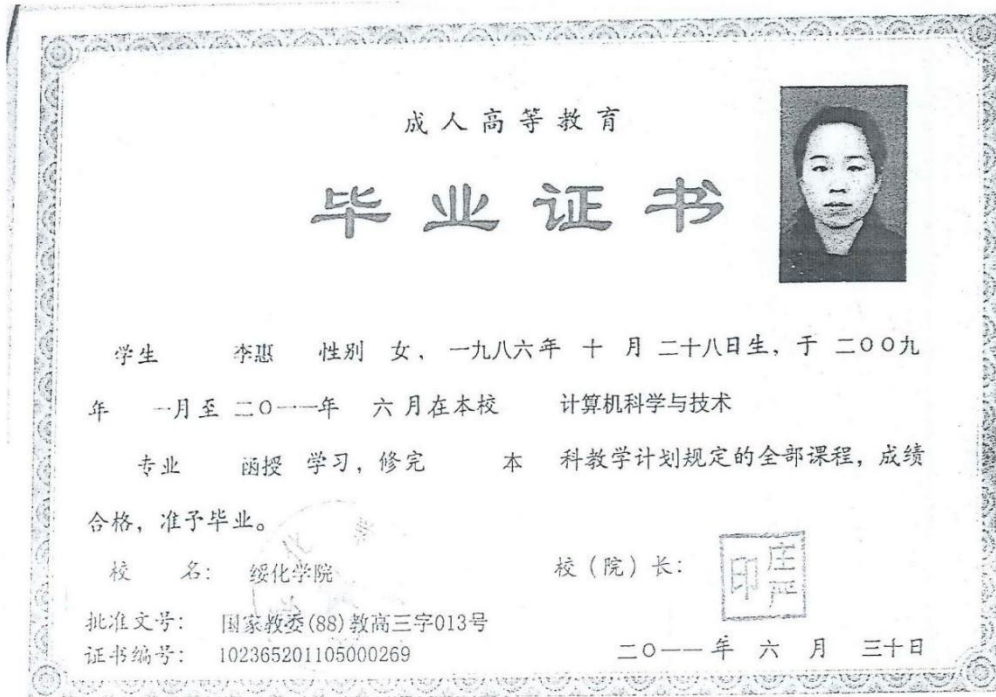 成人高等教育
毕业证书
学生 李惠 性别 女, 一九八六年 十 月 二十八日生, 于 二00九
年 一月至 二0一一年 六 月在本校 计算机科学与技术
专业 函授 学习, 修完 本 科教学计划规定的全部课程, 成绩
合格, 准予毕业。
校 名: 绥化学院 校(院)长: 庄严印
批准文号: 国家教委(88)教高三字013号
证书编号: 102365201105000269 二0一一年 六 月 三十日